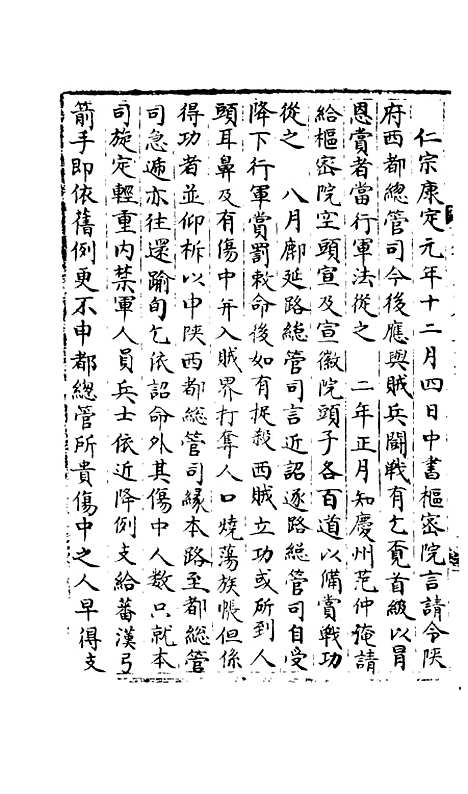 仁宗康定元年十二月四日中書樞密院言請令陝
府西都總管司今後應與賊兵鬪戰有乞覔首級以冐
恩賞者當行軍法從之　二年正月知慶州范仲淹請
給樞密院空頭宣及宣徽院頭子各百道以備賞戰功
從之　八月鄜延路總管司言近詔逐路總管司自受
降下行軍賞罰敕命後如有捉殺西賊立功或斫到人
頭耳鼻及有傷中并入賊界打奪人口燒蕩族帳但係
得功者並仰析以申陝西都總管司縁本路至都總管
司急逓亦往還踰旬乞依詔命外其傷中人数只就本
司旋定輕重内禁軍人員兵士依近降例支給蕃漢弓
箭手即依舊例更不申都總管所貴傷中之人早得支